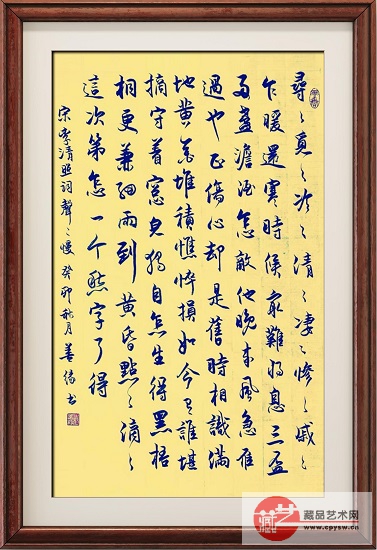 尋〻覓〻冷〻清〻凄〻慘〻戚〻
乍暖還寒時候最難將息三盃
兩盞澹酒怎敵他晚来風急雁
過也正傷心却是舊時相識滿
地黄花堆積憔悴損如今有誰堪
摘守着窓兒獨自怎生得黑梧
桐更兼細雨到黄昏點〻滴〻
這次第怎一个愁字了得
宋李清照詞聲〻慢癸卯秋月善书
藏艺
藏品艺术网
www.cpysw.cn